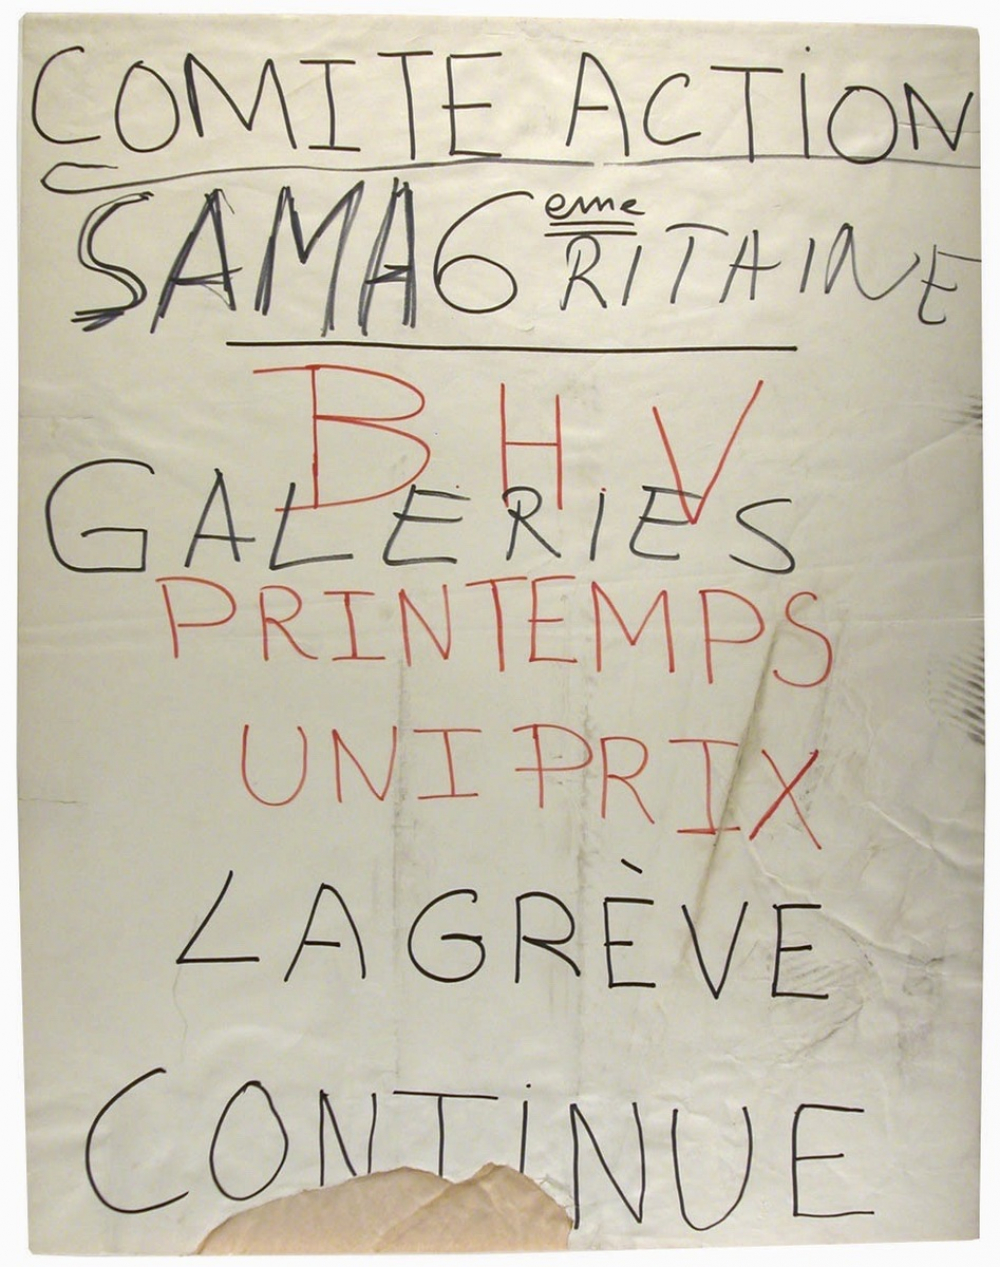 COMITE ACTION
SAMA6eme RITAINE
BHV
GALERIES
PRINTEMPS
UNIPRIX
LA GRÈVE
CONTINUE